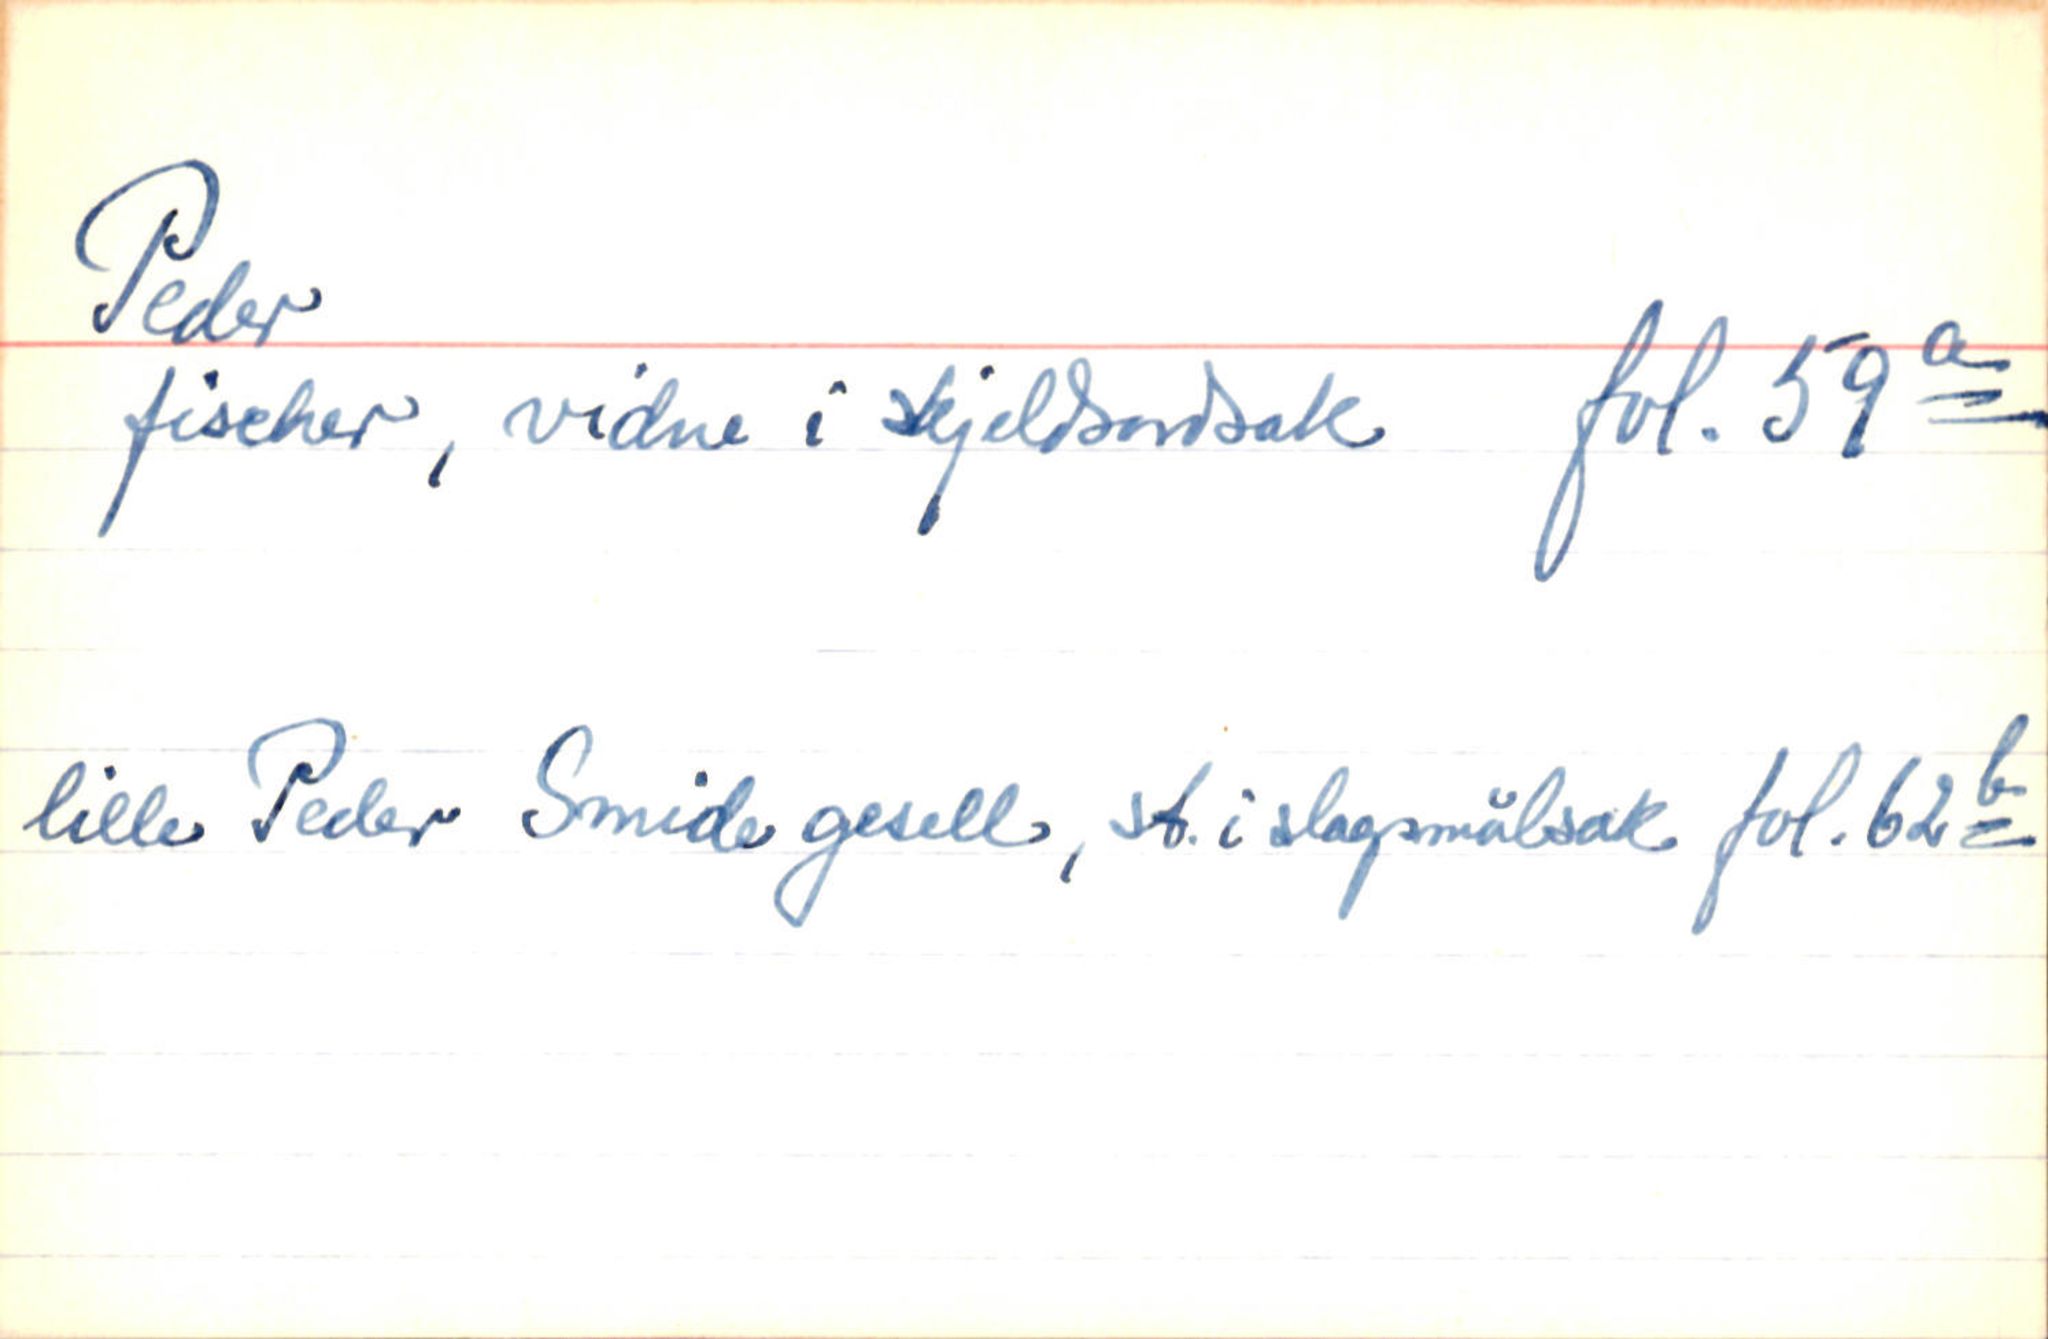 Peder
fischer, vidne i skjeldsordsak fol. 59 a
lille Peder Smide gesell, st. i slagsmålsak fol. 62 b